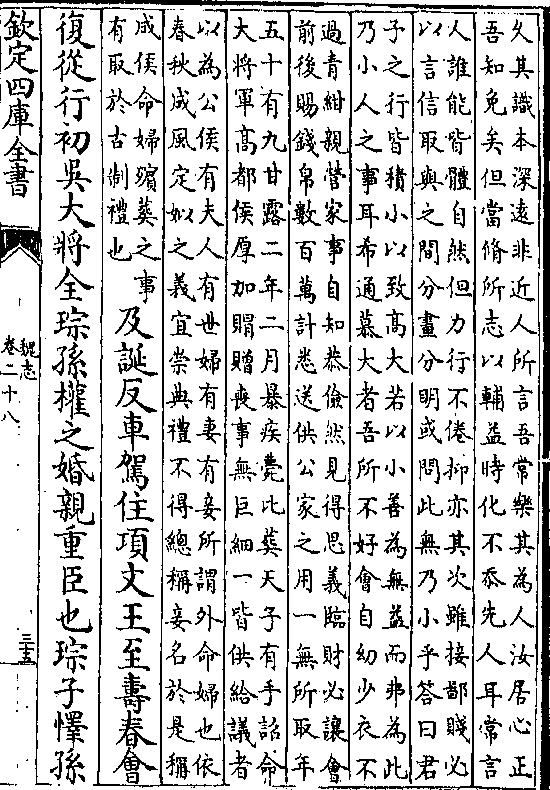 久其識本深遠非近人所言吾常樂其為人汝居心正
吾知免矣但當脩所志以輔益時化不忝先人耳常言
人誰能皆體自然但力行不倦抑亦其次雖接鄙賤必
以言信取與之間分畫分明或問此無乃小乎答曰君
子之行皆積小以致高大若以小善為無益而弗為此
乃小人之事耳布通慕大者吾所不好會自幼少衣不
過青紺親營家事自知恭儉然見得思義臨財必讓會
前後賜錢帛數百萬計悉送供公家之用一無所取年
五十有九甘露二年二月暴疾薨比葬天子有手詔命
大將軍高都侯厚加賵贈喪事無巨細一皆供給議者
以為公侯有夫人有世婦有妻有妾所謂外命婦也依
春秋成風定姒之義宜崇典禮不得總稱妾名於是稱
成侯命婦殯葬之事
有取於古制禮也
及誕反車駕住項文王至壽春會
復從行初吳大將全琮孫權之婚親重臣也琮子懌孫
欽定四庫全書
魏志
卷二十八
三十五